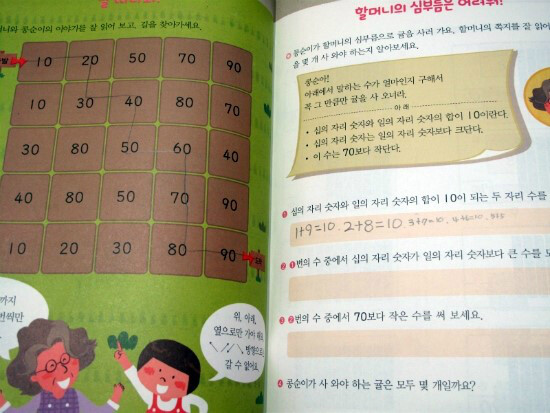 콩순이의 이야기를 잘 읽어 보고, 길을 찾아가세요.
10 20 50 70 90
10 30 40 50 80
30 80 50 60 40
40 80 50 70 60
10 20 30 80 90
위, 아래,
옆으로만 가야 해요.
방향으로는
갈 수 없어요.
할머니의 심부름은 어려워!
콩순이가 할머니의 심부름으로 귤을 사러 가요. 할머니의 쪽지를 잘 읽어
을 몇 개 사 와야 하는지 알아보세요.
콩순아!
아래에서 말하는 수가 얼마인지 구해서
꼭 그 만큼만 귤을 사 오너라.
아래
• 십의 자리 숫자와 일의 자리 숫자의 합이 10이란다.
• 십의 자리 숫자는 일의 자리 숫자보다 크단다.
• 이 수는 70보다 작단다.
1 십의 자리 숫자와 일의 자리 숫자의 합이 10이 되는 두 자리 수를
1+9=10. 2+8=10. 3+7=10. 4+6=10.
2 1번의 수 중에서 십의 자리 숫자가 일의 자리 숫자보다 큰 수를 모
3 2번의 수 중에서 70보다 작은 수를 써 보세요.
4 콩순이가 사 와야 하는 귤은 모두 몇 개일까요?